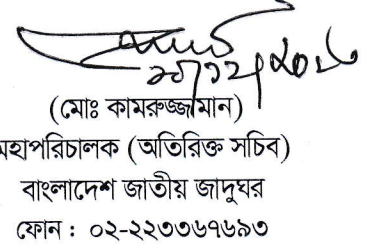 (মোঃ কামরুজ্জামান)
মহাপরিচালক (অতিরিক্ত সচিব)
বাংলাদেশ জাতীয় জাদুঘর
ফোন : ০২-২২৩৩৬৭৬৯৩